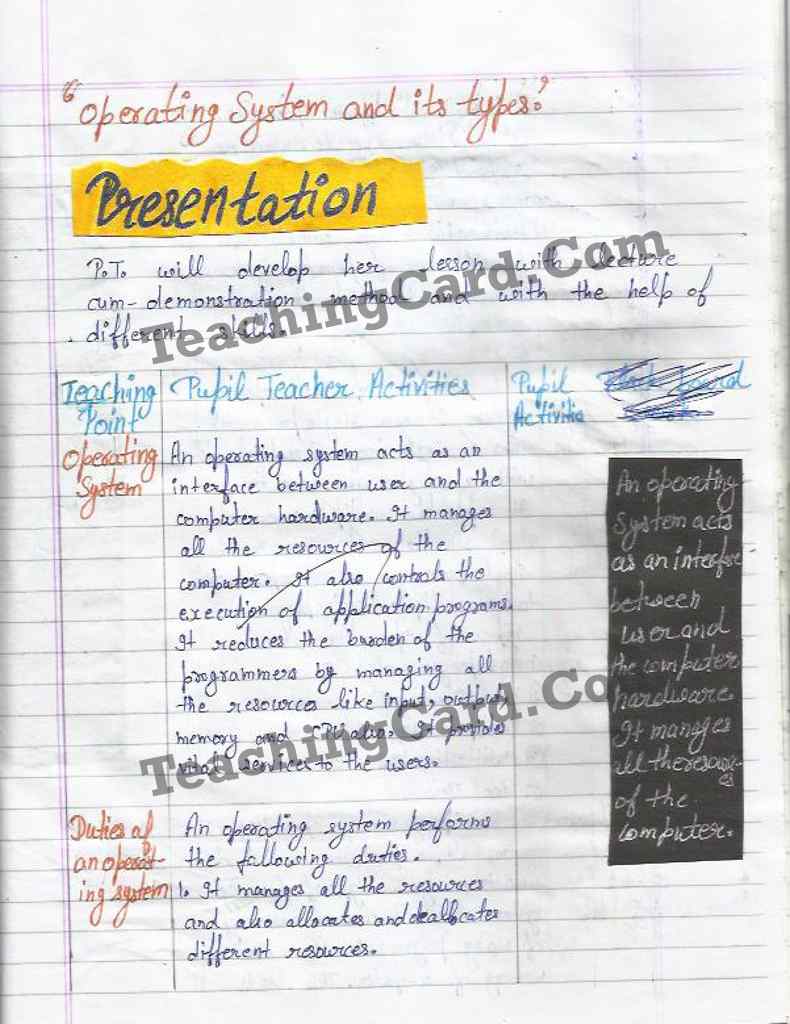 "Operating System and its types."
Presentation
P.T. will develop her lesson with lecture
cum-demonstration method and with the help of
different skills.
TeachingCard.Com
Teaching
Point
Pupil Teacher Activities
Pupil
Activitie
Operating
System
An operating system acts as an
interface between user and the
computer hardware. It manages
all the resources of the
computer. It also controls the
execution of application programs.
It reduces the burden of the
programmers by managing all
the resources like input, output,
memory and CPU also. It provides
vital services to the users.
TeachingCard.Co
An operating
System acts
as an interface
between
user and
the computer
hardware.
It manages
all the resourc-
es
of the
computer.
Duties of
an operat-
ing system
An operating system performs
the following duties.
1. It manages all the resources
and also allocates and deallocates
different resources.